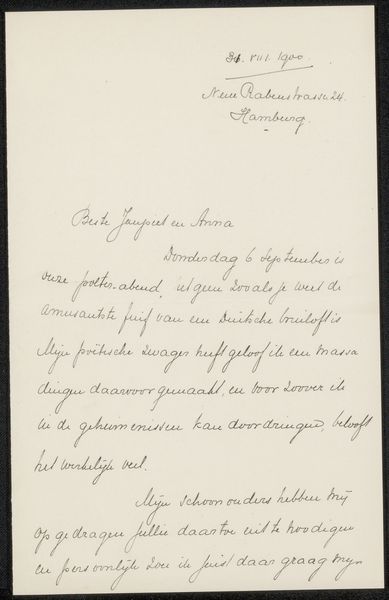 31. VIII 1900.
Neue Rabenstrasse 24.
Hamburg.
Beste Janpiet en Anna
Donderdag 6 September is
onze polter-abend, 'tgeen zooals je weet de
amusantste fuif van een Duitsche bruiloft is
Mijn poëtische zwager heeft geloof ik een massa
dingen daarvoor gemaakt, en voor zoover ik
in de geheimenissen kan doordringen, belooft
het werkelijk veel.
Mijn schoonouders hebben mij
opgedragen jullie daartoe uit te noodigen
en persoonlijk zou ik juist daar graag mijn